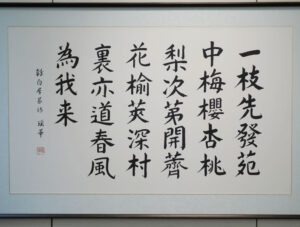 一枝先發苑
中梅櫻杏桃
梨次苐開薺
花榆莢深村
裏亦道春風
為我来
白居易詩